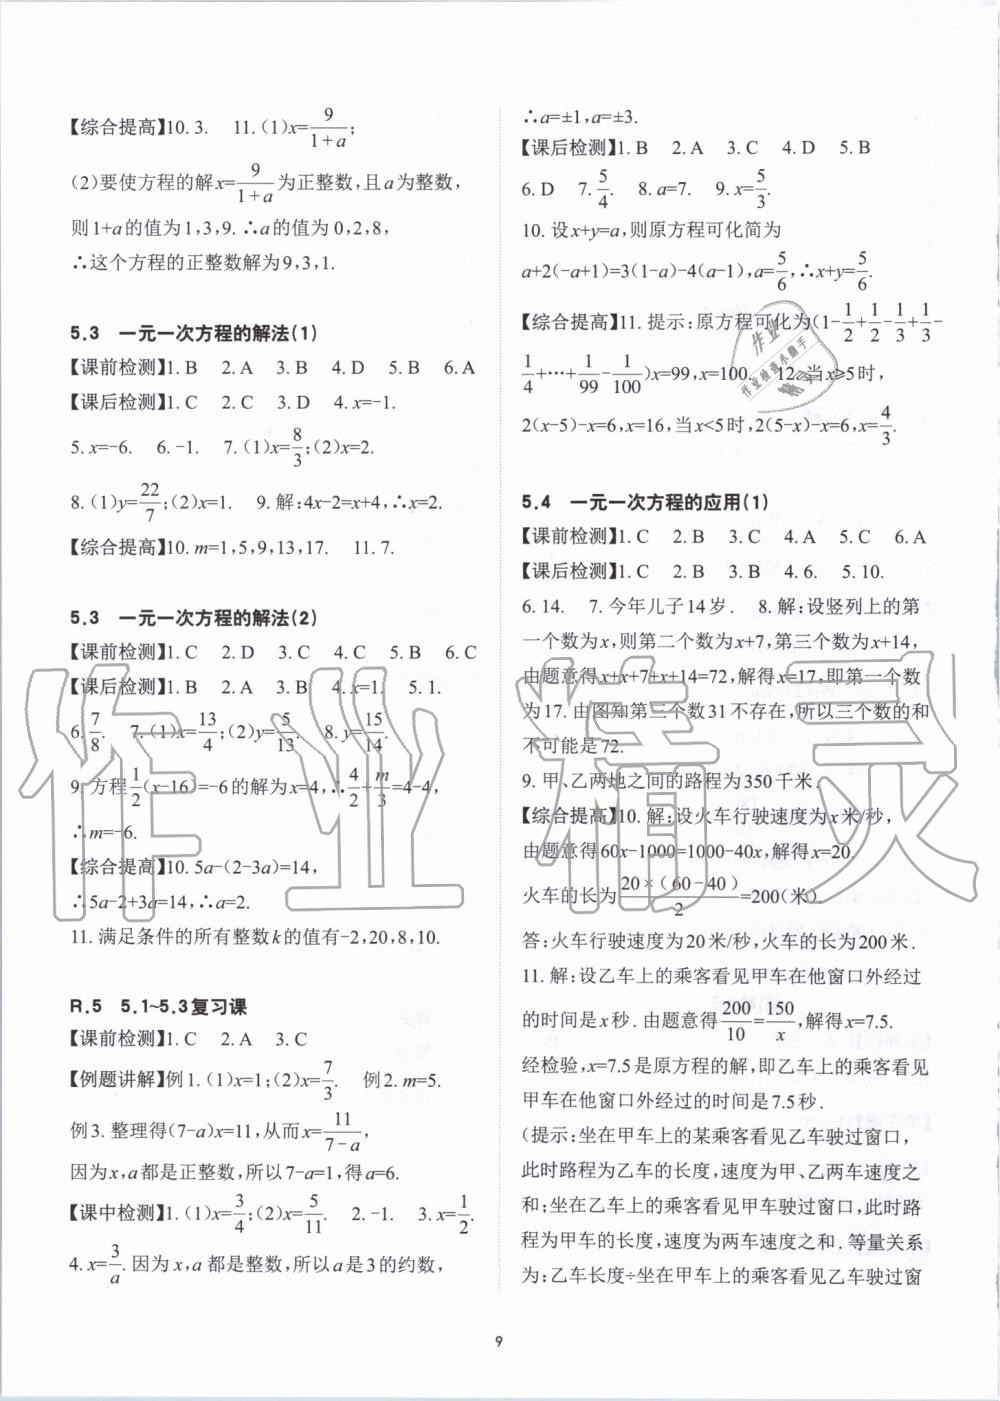 【综合提高】10. 3.　11. (1)x=9/(1+a);
(2)要使方程的解x=9/(1+a)为正整数,且a为整数,
则1+a的值为1,3,9. ∴a的值为0,2,8,
∴这个方程的正整数解为9,3,1.
5.3　一元一次方程的解法(1)
【课前检测】1. B　2. A　3. B　4. C　5. B　6. A
【课后检测】1. C　2. C　3. D　4. x=-1.
5. x=-6.　6. -1.　7. (1)x=8/3;(2)x=2.
8. (1)y=22/7;(2)x=1.　9. 解:4x-2=x+4,∴x=2.
【综合提高】10. m=1,5,9,13,17.　11. 7.
5.3　一元一次方程的解法(2)
【课前检测】1. C　2. D　3. C　4. C　5. B　6. C
【课后检测】1. B　2. A　3. B　4. x=1.　5. 1.
6. 7/8.　7. (1)x=13/4;(2)y=5/13.　8. y=15/14.
9. 方程1/2(x-16)=-6的解为x=4,∴4/2+m/3=4-4,
∴m=-6.
【综合提高】10. 5a-(2-3a)=14,
∴5a-2+3a=14,∴a=2.
11. 满足条件的所有整数k的值有-2,20,8,10.
R.5　5.1~5.3复习课
【课前检测】1. C　2. A　3. C
【例题讲解】例1. (1)x=1;(2)x=7/3.　例2. m=5.
例3. 整理得(7-a)x=11,从而x=11/(7-a),
因为x,a都是正整数,所以7-a=1,得a=6.
【课中检测】1. (1)x=3/4;(2)x=5/11.　2. -1.　3. x=1/2.
4. x=3/a. 因为x,a都是整数,所以a是3的约数,
∴a=±1,a=±3.
【课后检测】1. B　2. A　3. C　4. D　5. B
6. D　7. 5/4.　8. a=7.　9. x=5/3.
10. 设x+y=a,则原方程可化简为
a+2(-a+1)=3(1-a)-4(a-1),a=5/6,∴x+y=5/6.
【综合提高】11. 提示:原方程可化为(1-1/2+1/2-1/3+1/3-
1/4+…+1/99-1/100)x=99,x=100.　12. 当x≥5时,
2(x-5)-x=6,x=16,当x<5时,2(5-x)-x=6,x=4/3.
5.4　一元一次方程的应用(1)
【课前检测】1. C　2. B　3. C　4. A　5. C　6. A
【课后检测】1. C　2. B　3. B　4. 6.　5. 10.
6. 14.　7. 今年儿子14岁.　8. 解:设竖列上的第
一个数为x,则第二个数为x+7,第三个数为x+14,
由题意得x+x+7+x+14=72,解得x=17,即第一个数
为17. 由图知第三个数31不存在,所以三个数的和
不可能是72.
9. 甲、乙两地之间的路程为350千米.
【综合提高】10. 解:设火车行驶速度为x米/秒,
由题意得60x-1000=1000-40x,解得x=20.
火车的长为20×(60-40)/2=200(米).
答:火车行驶速度为20米/秒,火车的长为200米.
11. 解:设乙车上的乘客看见甲车在他窗口外经过
的时间是x秒. 由题意得200/10=150/x,解得x=7.5.
经检验,x=7.5是原方程的解,即乙车上的乘客看见
甲车在他窗口外经过的时间是7.5秒.
(提示:坐在甲车上的某乘客看见乙车驶过窗口,
此时路程为乙车的长度,速度为甲、乙两车速度之
和;坐在乙车上的乘客看见甲车驶过窗口,此时路
程为甲车的长度,速度为两车速度之和. 等量关系
为:乙车长度÷坐在甲车上的乘客看见乙车驶过窗
9
作业精灵
作业
作业检查小助手
精灵